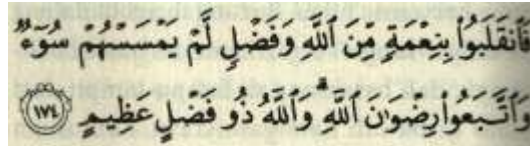 فَٱنقَلَبُوا۟ بِنِعْمَةٍ مِّنَ ٱللَّهِ وَفَضْلٍ لَّمْ يَمْسَسْهُمْ سُوٓءٌ
وَٱتَّبَعُوا۟ رِضْوَٰنَ ٱللَّهِ ۗ وَٱللَّهُ ذُو فَضْلٍ عَظِيمٍ ١٧٤